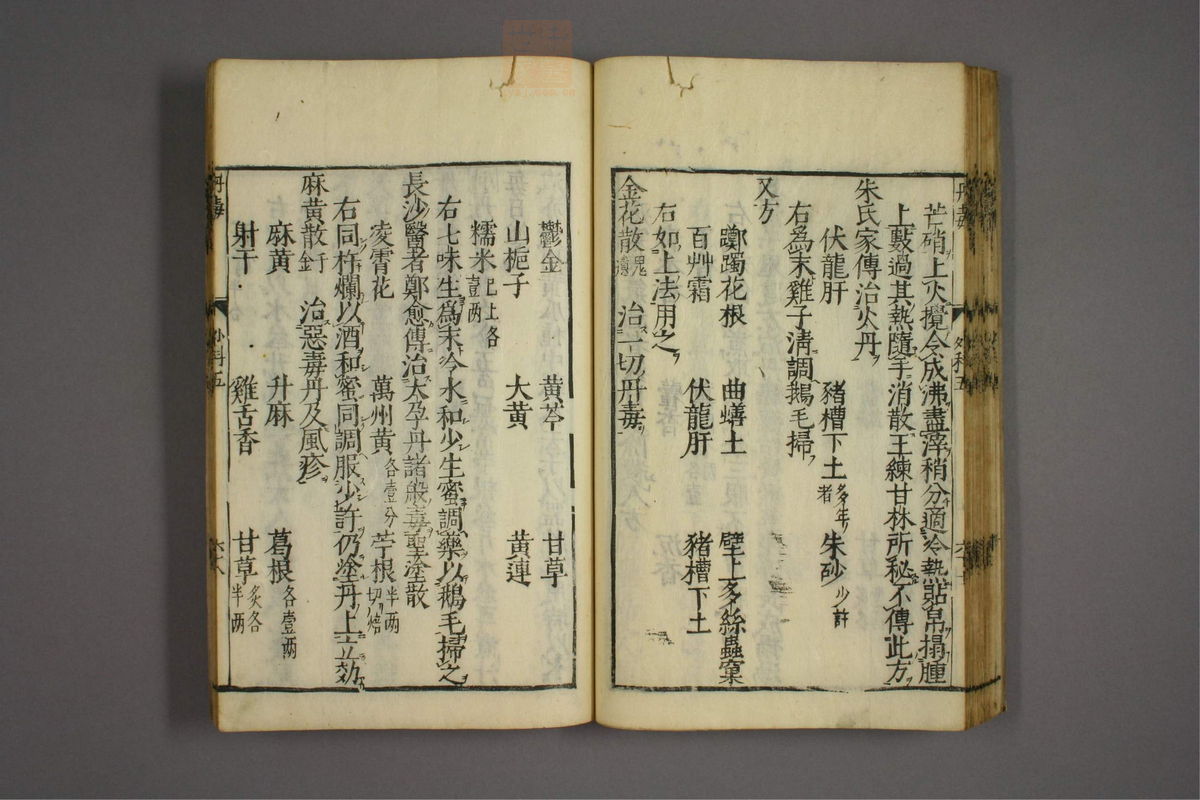 芒硝上火攪令成沸盡滓稍分適冷熱貼帛搨腫
上數過其熱隨手消散王練甘林所秘不傳此方
朱氏家傳治火丹
伏龍肝　豬槽下土多年者　朱砂少許
右為末雞子淸調鵝毛掃
又方
躑躅花根　曲蟮土　壁上多絲蟲窠
百艸霜　伏龍肝　豬槽下土
右如上法用之
金花散　治一切丹毒
鬱金　黃芩　甘草
山梔子　大黃　黃連
糯米已上各壹两
右七味生為末冷水和少生蜜調藥以鵝毛掃之
長沙醫者鄭愈傳治大孕丹諸般毒聖塗散
凌霄花　萬州黃各壹分　苧根半两切焙
右同杵爛以酒和蜜同調服少許仍塗丹上立効
麻黃散　治惡毒丹及風疹
麻黃　升麻　葛根各壹两
射干　雞舌香　甘草炙各半两
丹毒　外科五